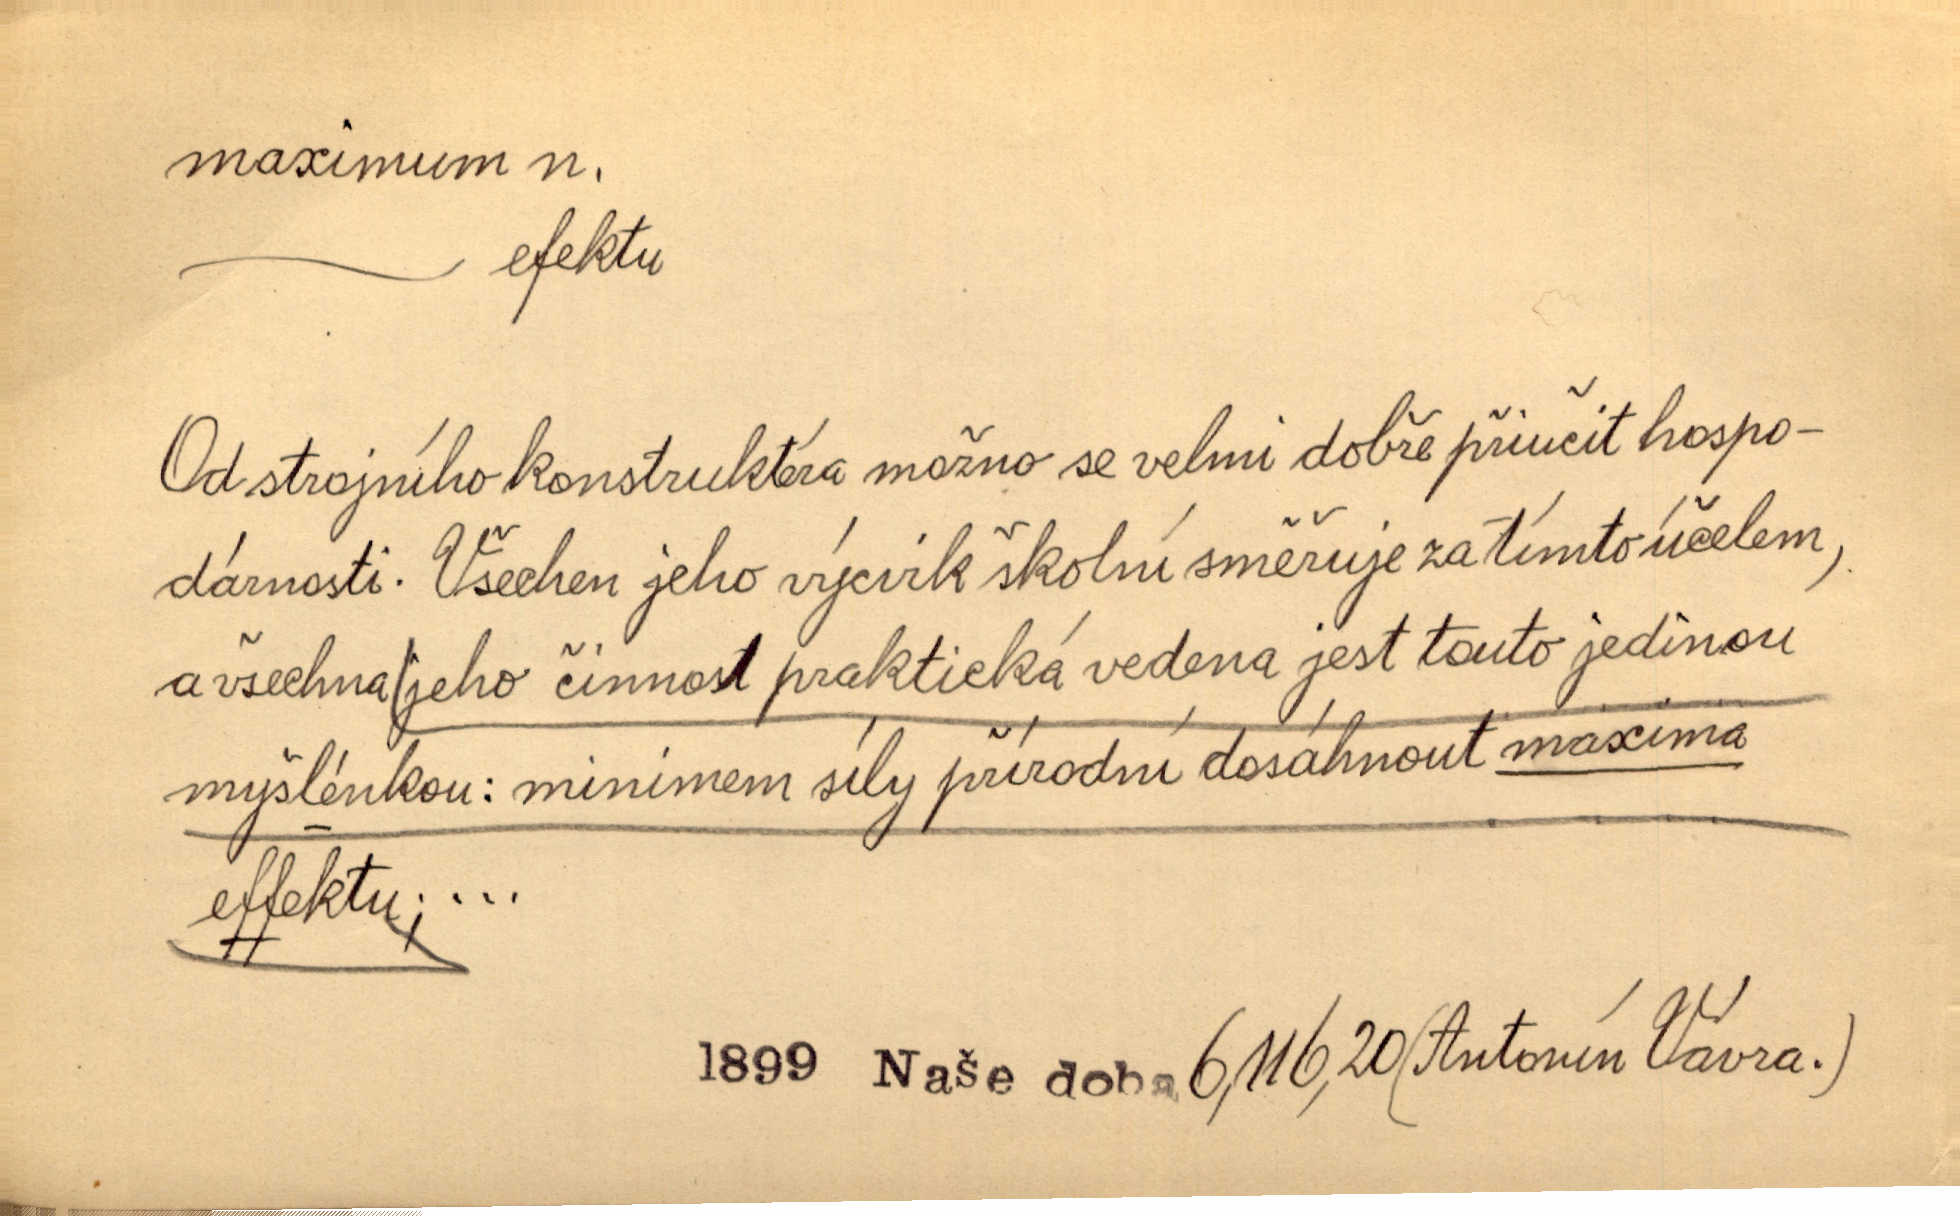 maximum n.
efektu
Od strojního konstruktéra možno se velmi dobře přiučit hospo-
dárnosti. Všechen jeho výcvik školní směřuje za tímto účelem,
a všechna (jeho činnost praktická vedena jest touto jedinou
myšlénkou: minimem síly přírodní dosáhnout maxima
effektu; ...
1899 Naše doba 6, 116, 20 (Antonín Vávra.)